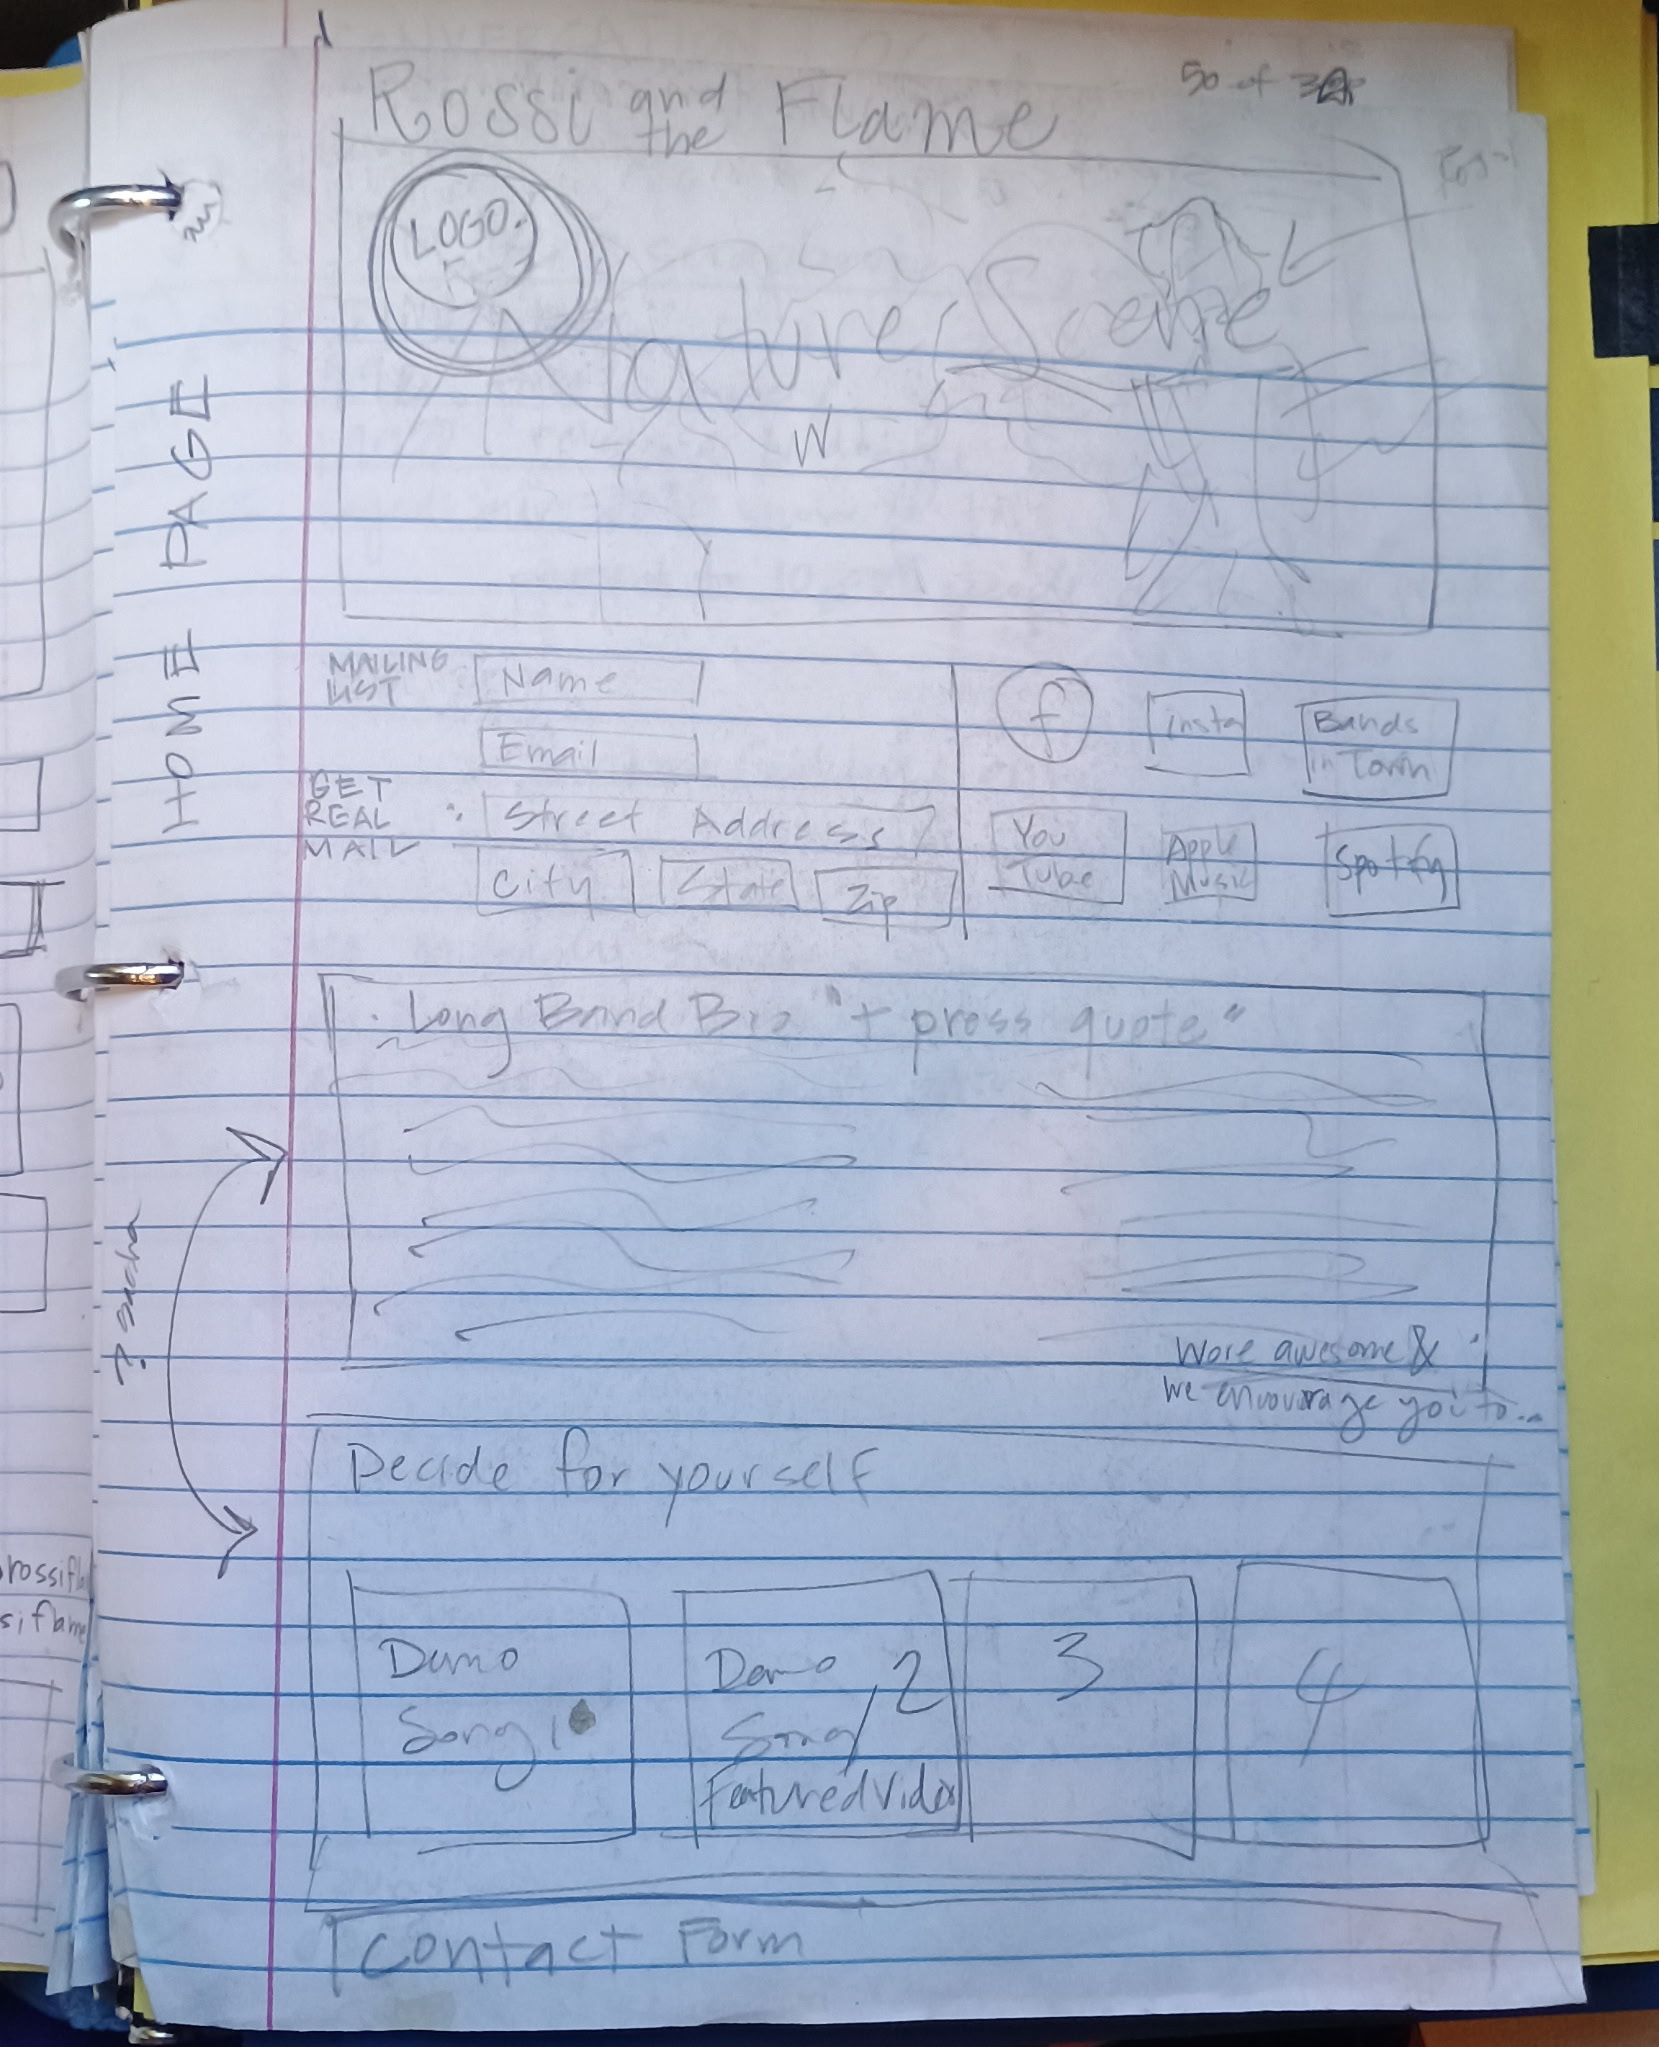 Rossi and the Flame
50 of
LOGO
Nature Scene
W
HOME PAGE
MAILING LIST
Name
Email
GET REAL MAIL :
Street Address
City
State
Zip
f
insta
Bands in Town
You Tube
Apple Music
Spotify
Long Band Bio "+ press quote"
? Sacha
Wore awesome &
we encourage you to...
Decide for yourself
Demo
Song 1
Demo
Song 2
Featured Video
3
4
Contact Form
rossifla
siflame